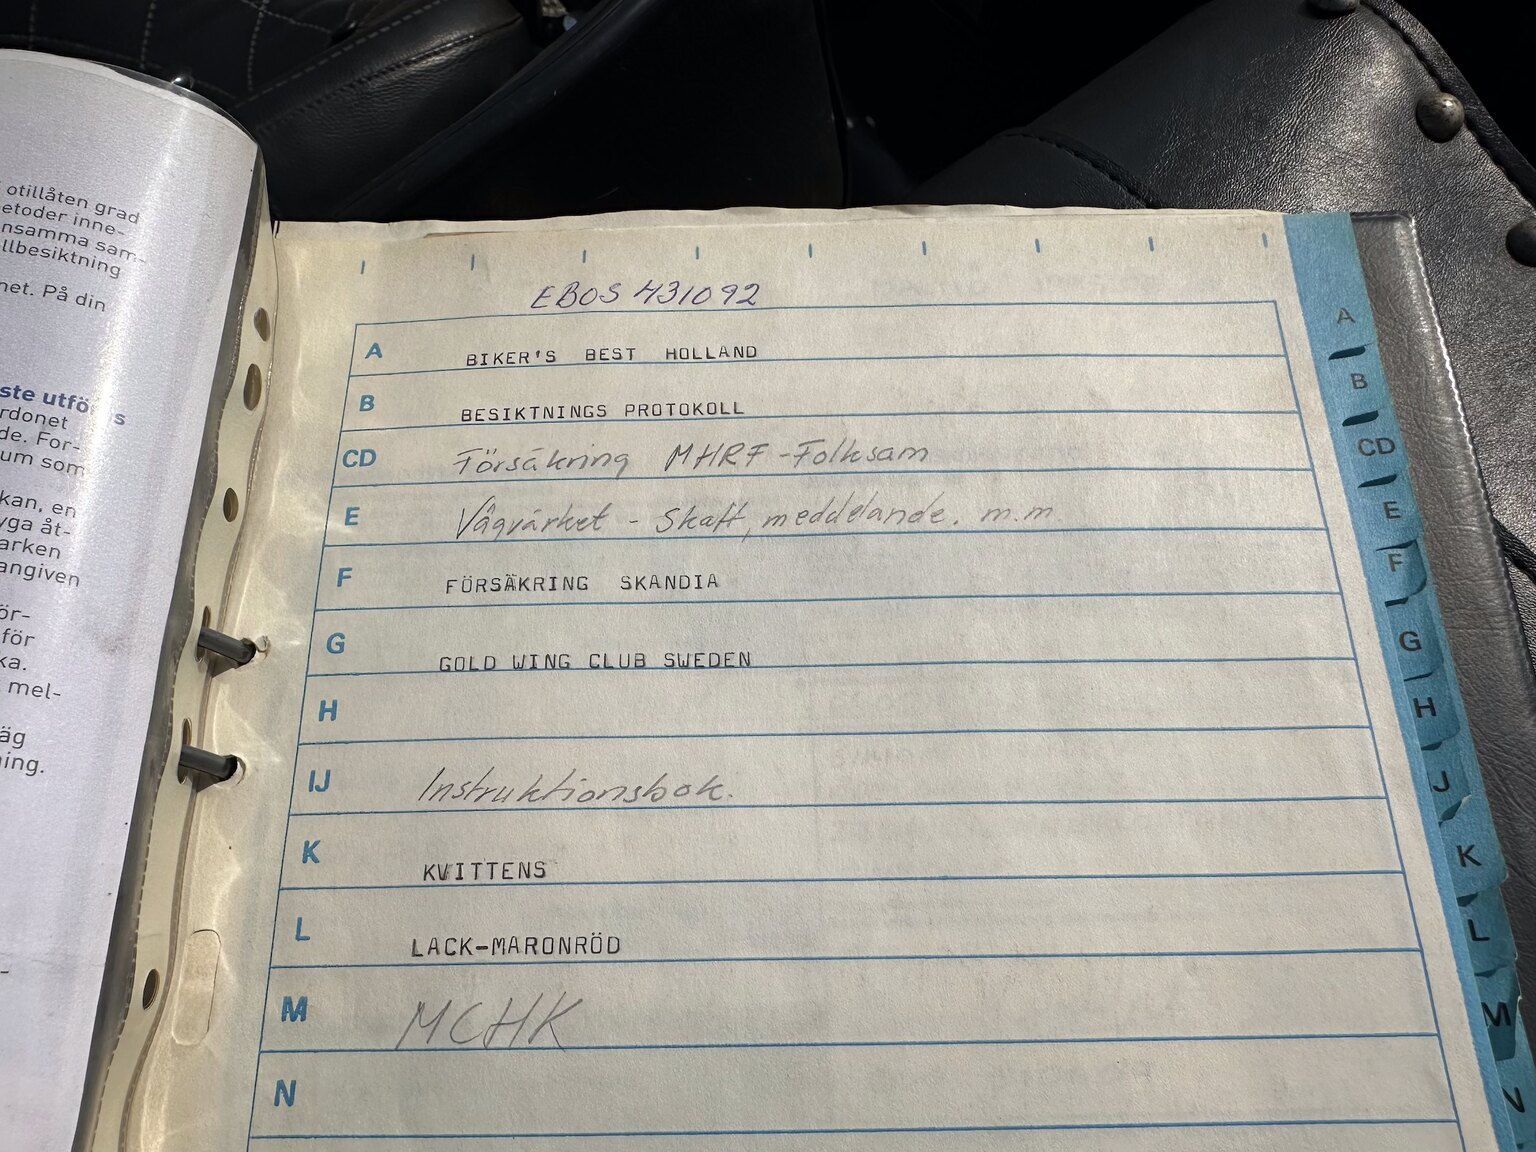 otillåten grad
etoder inne-
nsamma sam-
llbesiktning
het. På din
ste utfö s
rdonet
de. For-
um som
kan, en
yga åt-
arken
angiven
ör-
för
ka.
mel-
äg
ing.
EBOS 431092
A BIKER'S BEST HOLLAND
B BESIKTNINGS PROTOKOLL
CD Försäkring MHRF-Folksam
E Vägvärket - Skatt, meddelande. m.m
F FÖRSÄKRING SKANDIA
G GOLD WING CLUB SWEDEN
H
IJ Instruktionsbok.
K KVITTENS
L LACK-MARONRÖD
M MCHK
N
A
B
CD
E
F
G
H
J
K
L
M
N